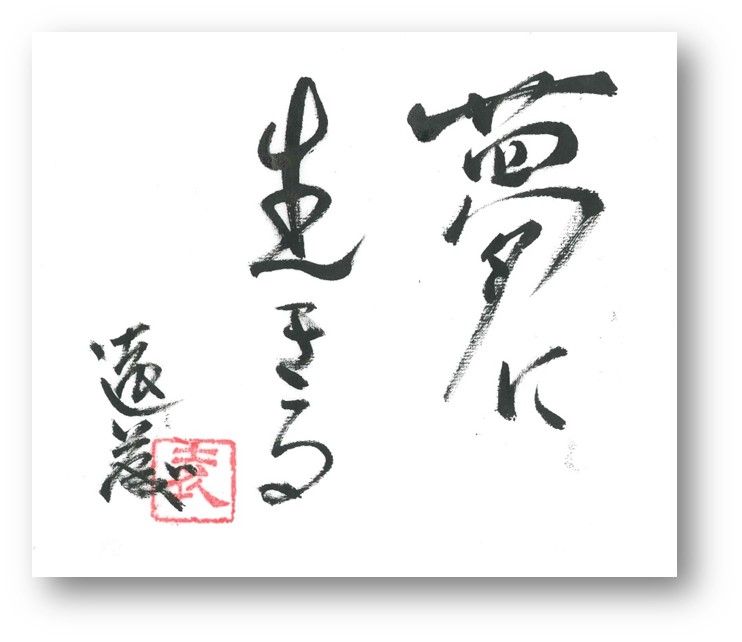 夢に
生きる
遠藤